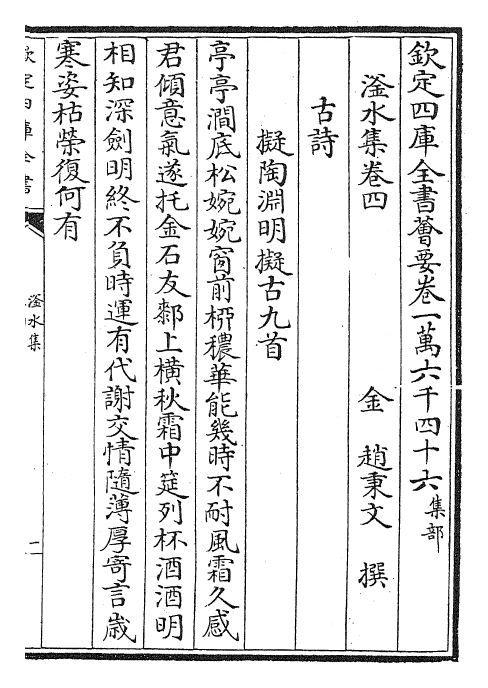 欽定四庫全書薈要卷一萬六千四十六集部
滏水集卷四　金　趙秉文　撰
古詩
擬陶淵明擬古九首
亭亭澗底松婉婉窗前桺穠華能幾時不耐風霜久感
君傾意氣遂托金石友鄴上橫秋霜中筵列杯酒酒明
相知深劍明終不負時運有代謝交情隨薄厚寄言歳
寒姿枯榮復何有
欽定四庫全書
滏水集
二